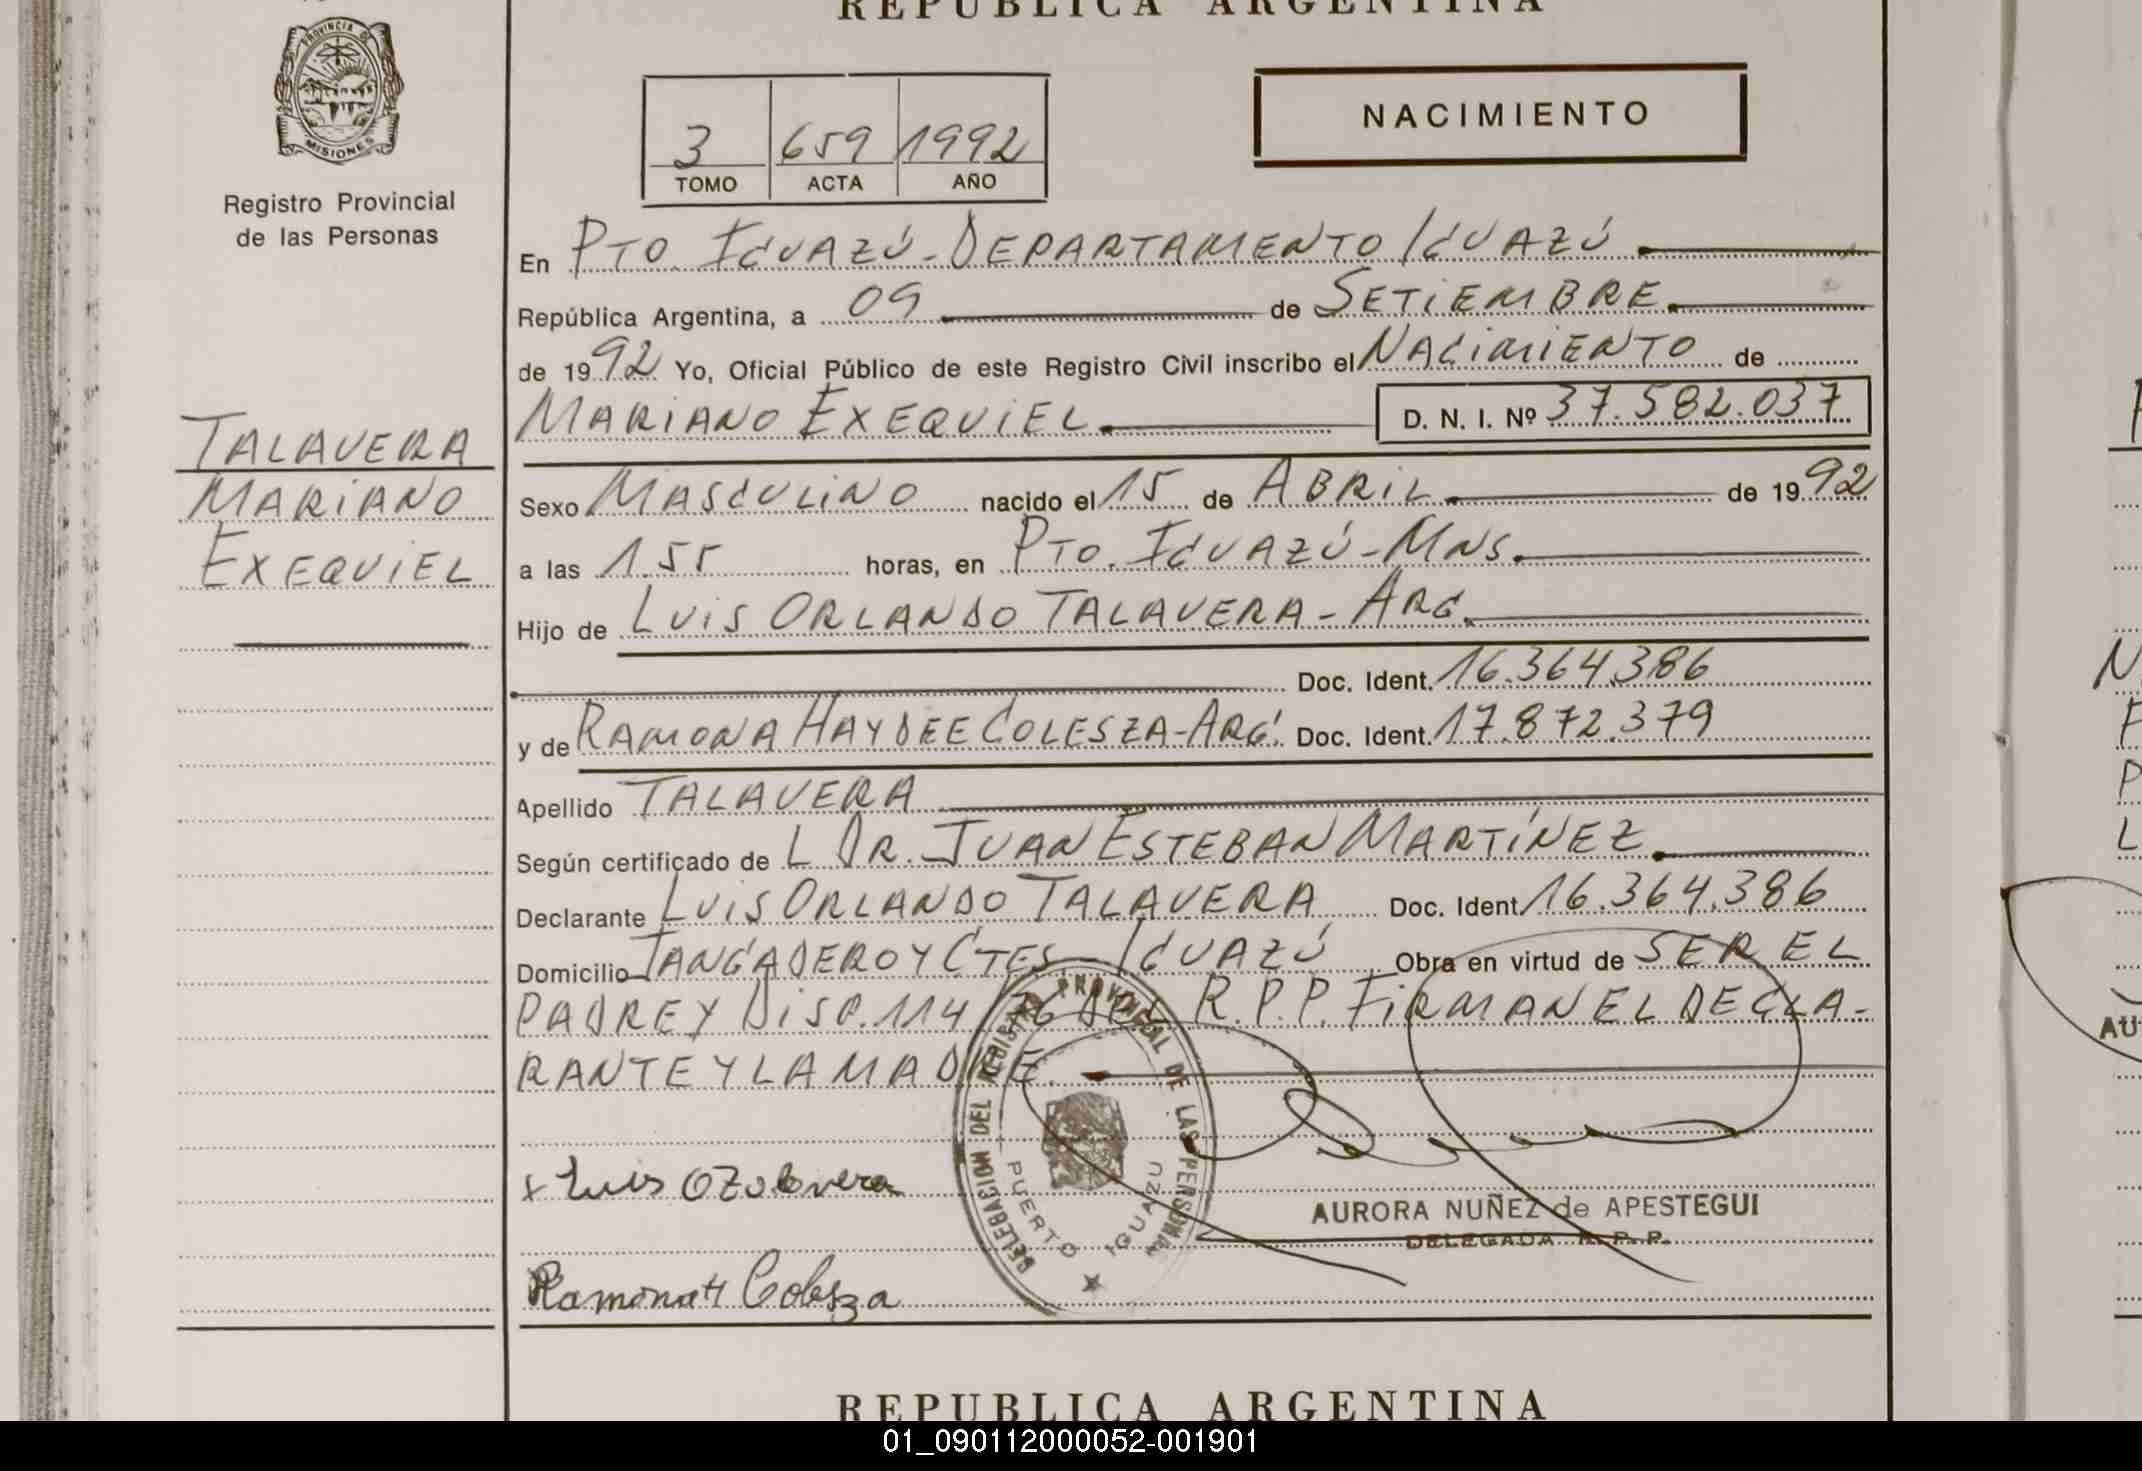 REPUBLICA ARGENTINA
PROVINCIA DE
MISIONES
Registro Provincial
de las Personas
NACIMIENTO
3 659 1992
TOMO ACTA AÑO
En PTO. IGUAZÚ - DEPARTAMENTO IGUAZÚ
República Argentina, a 09 de SETIEMBRE
de 1992 Yo, Oficial Público de este Registro Civil inscribo el NACIMIENTO de
MARIANO EXEQUIEL D. N. I. Nº 37.582.037
TALAVERA
MARIANO
EXEQUIEL
Sexo MASCULINO nacido el 15 de ABRIL de 1992
a las 1.55 horas, en PTO. IGUAZÚ - MNS.
Hijo de LUIS ORLANDO TALAVERA - ARG.
Doc. Ident. 16.364.386
y de RAMONA HAYDEE COLESZA - ARG. Doc. Ident. 17.872.379
Apellido TALAVERA
Según certificado de L DR. JUAN ESTEBAN MARTÍNEZ
Declarante LUIS ORLANDO TALAVERA Doc. Ident 16.364.386
Domicilio TANGADERO Y CTES - IGUAZÚ Obra en virtud de SER EL
PADRE Y DISP. 114/76 DEL R.P.P. FIRMAN EL DECLA-
RANTE Y LA MADRE.
DELEGACION DEL REGISTRO PROVINCIAL DE LAS PERSONAS
PUERTO IGUAZU
x Luis O Talavera
AURORA NUÑEZ de APESTEGUI
DELEGADA R. P. P.
Ramona H Colesza
REPUBLICA ARGENTINA
AU
01_090112000052-001901